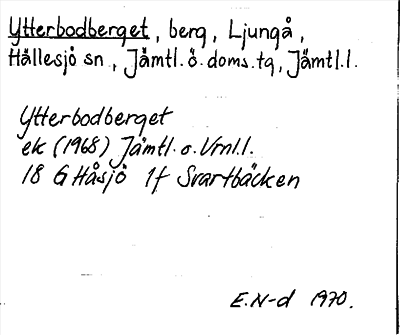 Ytterbodberget, berg, Ljungå,
Hällesjö sn, Jämtl.ö.doms.tg, Jämtl.l.
Ytterbodberget
ek (1968) Jämtl.o.Vrnl.l.
18 G Håsjö 1f Svartbäcken
E.N-d 1970.